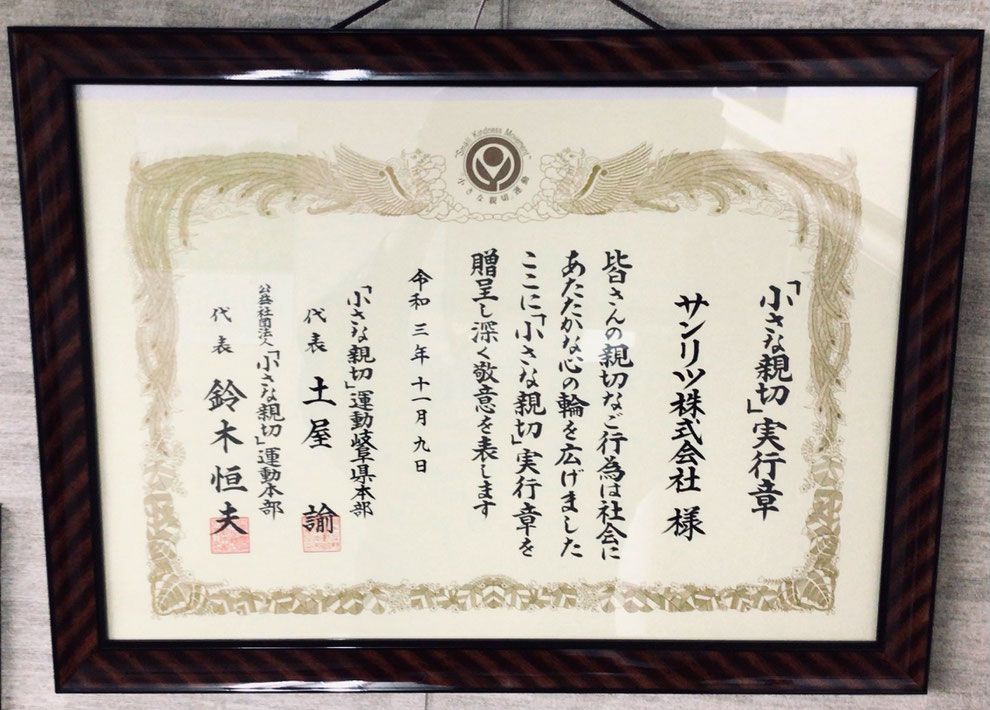 "Small Kindness Movement"
小さな親切運動
「小さな親切」実行章
サンリツ株式会社 様
皆さんの親切なご行為は社会に
あたたかな心の輪を広げました
ここに「小さな親切」実行章を
贈呈し深く敬意を表します
令和三年十一月九日
「小さな親切」運動岐阜県本部
代表 土屋 諭
公益社団法人「小さな親切」運動本部
代表 鈴木恒夫